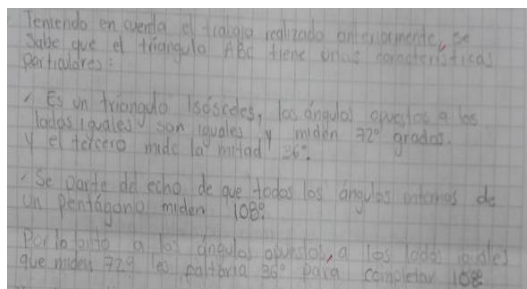 Teniendo en cuenta el trabajo realizado anteriormente, se
sabe que el triangulo ABC tiene unas caracteristicas
particulares:
✓ Es un triangulo Isósceles, los ángulos opuestos a los
lados iguales son iguales y miden 72° grados.
Y el tercero mide la mitad 36°.
· Se parte del echo de que todos los ángulos internos de
un Pentágono miden 108°.
Por lo tanto a los ángulos opuestos, a los lados iguales
que miden 72° les faltaria 36° para completar 108